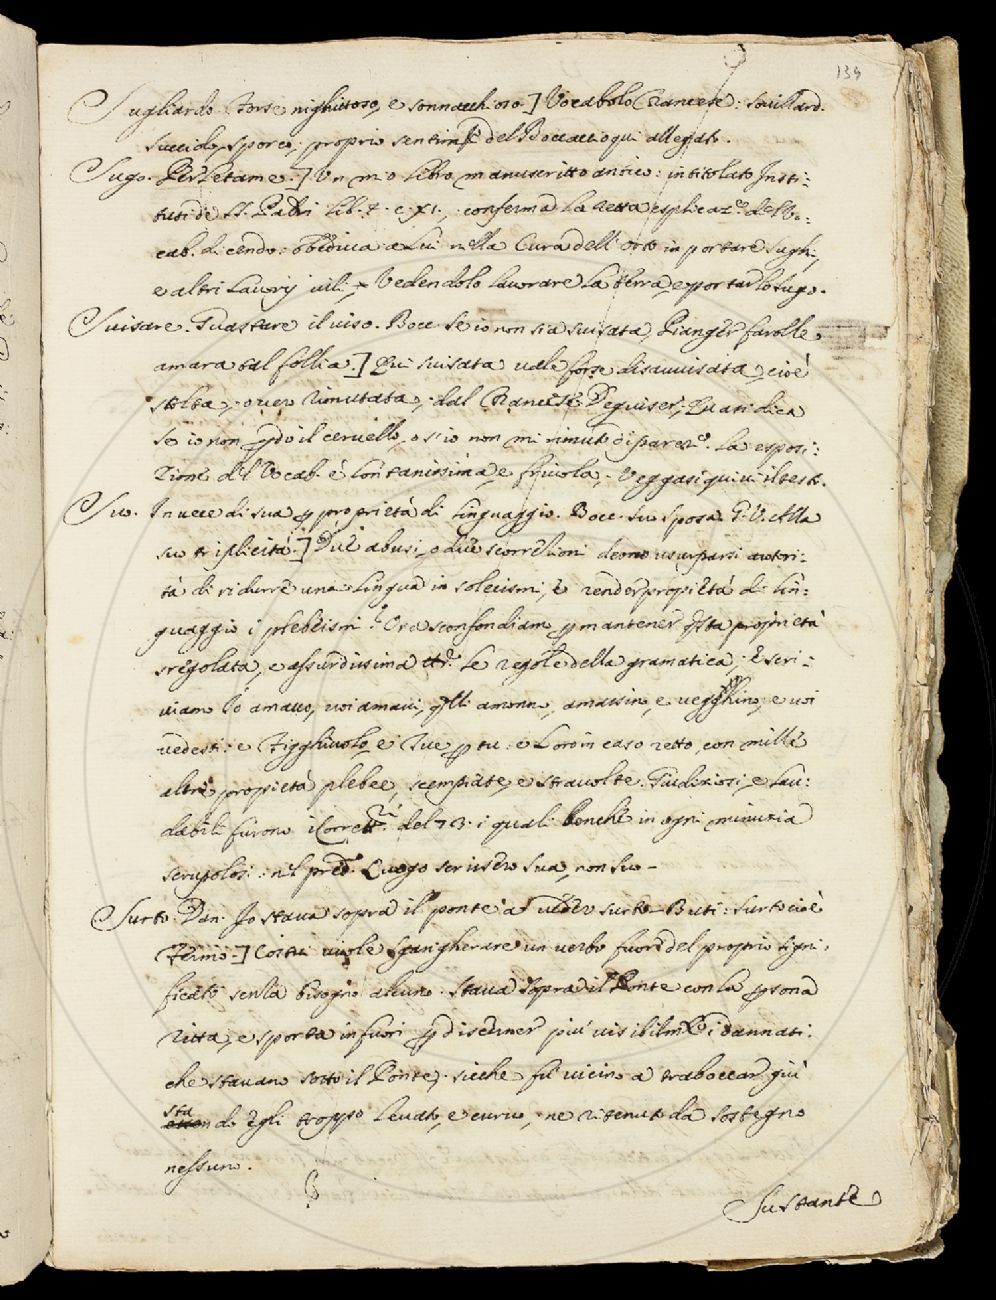 134
Sugliardo. Forse nighittoso, e sonnacchioso.] Vocabolo Francese: souillard:
succido, sporco, proprio del Boccaccio qui allegato.
Sugo. Per Letame.] Un mio libro manuscritto antico: intitolato Insti-
tuti de SS. Padri lib. 4. c. XI., conferma la retta esplicaz.e del Vo-
cab. dicendo: obediva a lui nella Cura dell' orto in portare sughi,
e altri Lavorij vili, Vedendolo lavorare la terra, e portar lo sugo.
Suisare. Guastare il viso. Bocc. Se io non sia suisata, Pianger farolle
amara tal follia.] Qui suisata vale forse disavvisata, cioè
stolta, over rimutata, dal Francese Deguiser, Quasi dica
se io non perdo il cervello, o s'io non mi rimuto di parere. La esposi-
zione del Vocab. è lontanissima, e frivola, Veggasi quivi il testo.
Suo. In vece di sua per proprietà di linguaggio. Bocc. suo sposa. G. V. Alla
suo triplicità.] Due abusi, o due scorrezioni deono usurparsi autori-
tà di ridurre una lingua in solecismi, e render propietà di lin-
guaggio i plebeismi? Ora sconfondiam per mantener questa proprietà
sregolata, e assurdissima le regole della gramatica, e scri-
viamo Io amavo, voi amavi, quelli amonno, amassino, e vegghino, e voi
vedesti: e Figghivolo, e Tue per tu: e Loro in caso retto, con mille
altre propietà plebee, scempiate, e stravolte. Giudiziosi, e lau-
dabili furono i Corrett.ri del 73. i quali benchè in ogni minuzia
scrupolosi: nel pred.o Luogo scrissero sua, non suo.
Surto. Dan. Io stava sopra il ponte a veder surto. Buti: surto cioè
Fermo.] Costui vuole sgangherare un verbo fuora del proprio signi-
ficato senza bisogno alcuno. Stava sopra il Ponte con la persona
ritta, e sporta in fuori per discerner più visibilmente i dannati:
che stavano sotto il Ponte, sicchè fu vicino a traboccar giù
stando Egli troppo levato, e curvo, ne ritenuto da sostegno
nessuno.
Sustante